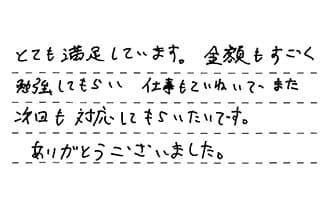 とても満足しています。金額もすごく
勉強してもらい 仕事もていねいで、また
次回も対応してもらいたいです。
ありがとうございました。